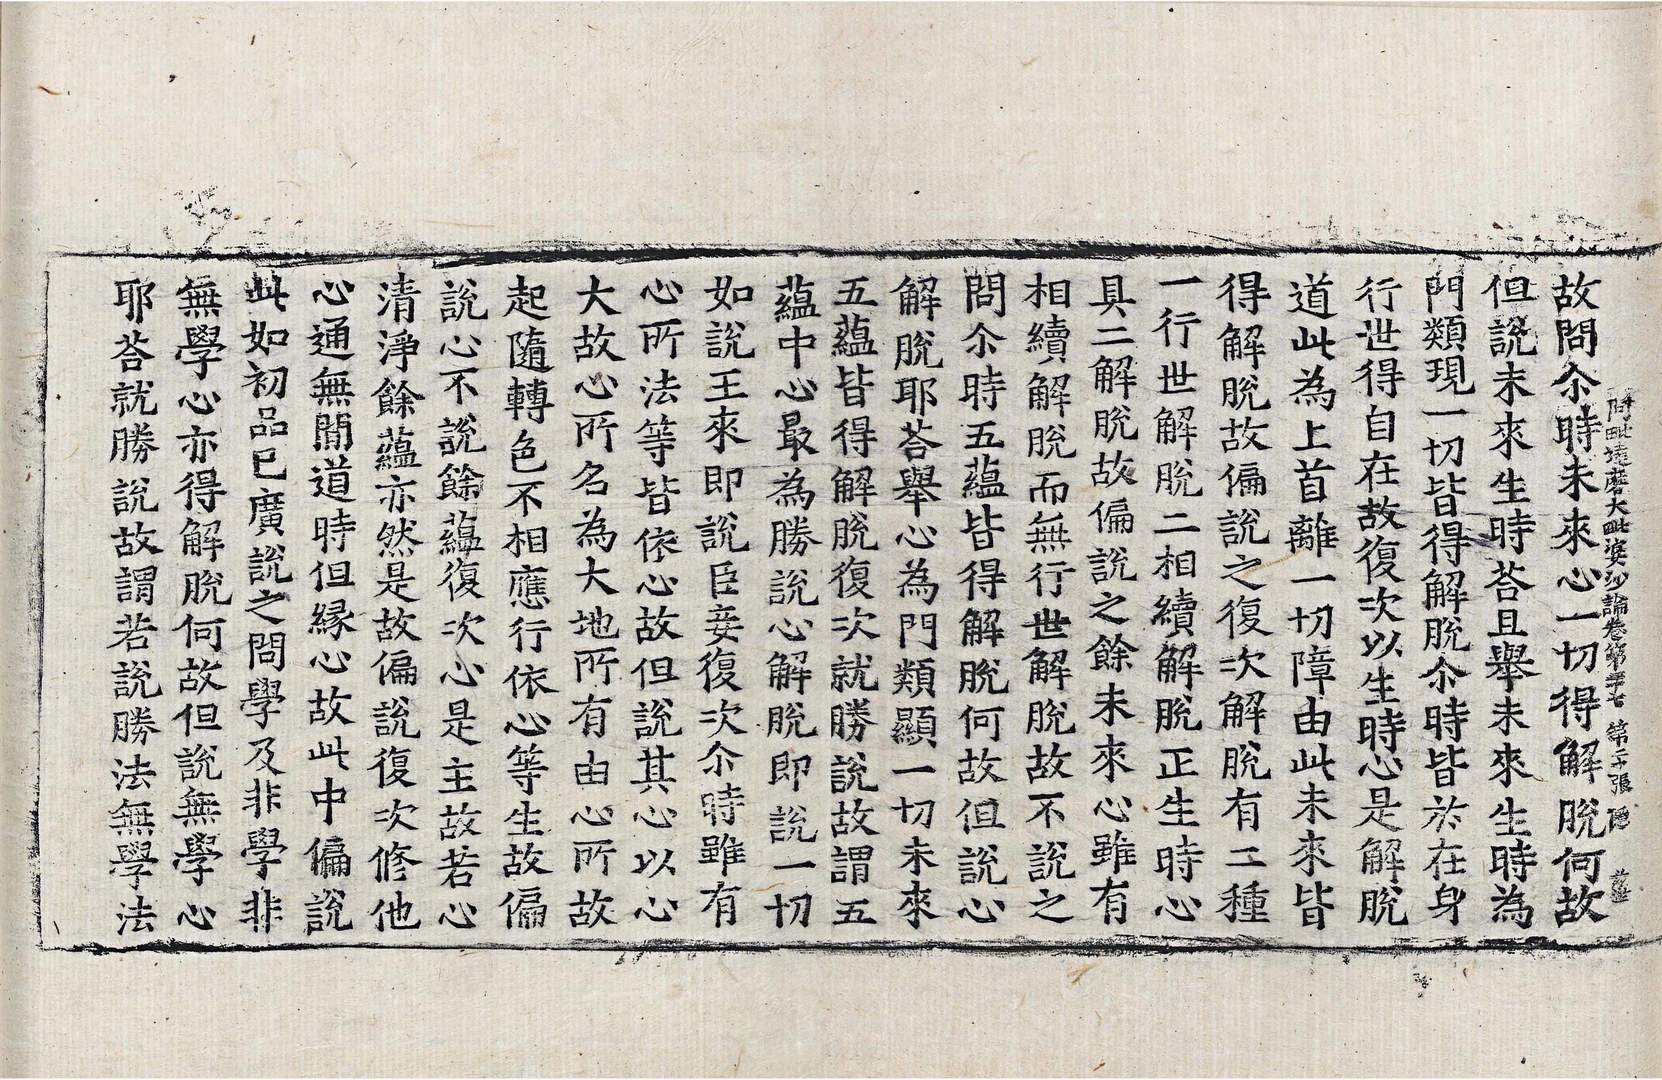 阿毗達磨大毗婆沙論卷第二十七 第二張
故問尒時未來心一切得解脫何故
但說未來生時荅且舉未來生時為
門類現一切皆得解脫尒時皆於在身
行世得自在故復次以生時心是解脫
道此為上首離一切障由此未來皆
得解脫故偏說之復次解脫有二種
一行世解脫二相續解脫正生時心
具二解脫故偏說之餘未來心雖有
相續解脫而無行世解脫故不說之
問尒時五蘊皆得解脫何故但說心
解脫耶荅舉心為門類顯一切未來
五蘊皆得解脫復次就勝說故謂五
蘊中心最為勝說心解脫即說一切
如說王來即說臣妾復次尒時雖有
心所法等皆依心故但說其心以心
大故心所名為大地所有由心所故
起隨轉色不相應行依心等生故偏
說心不說餘蘊復次心是主故若心
清淨餘蘊亦然是故偏說復次修他
心通無間道時但緣心故此中偏說
此如初品已廣說之問學及非學非
無學心亦得解脫何故但說無學心
耶荅就勝說故謂若說勝法無學法